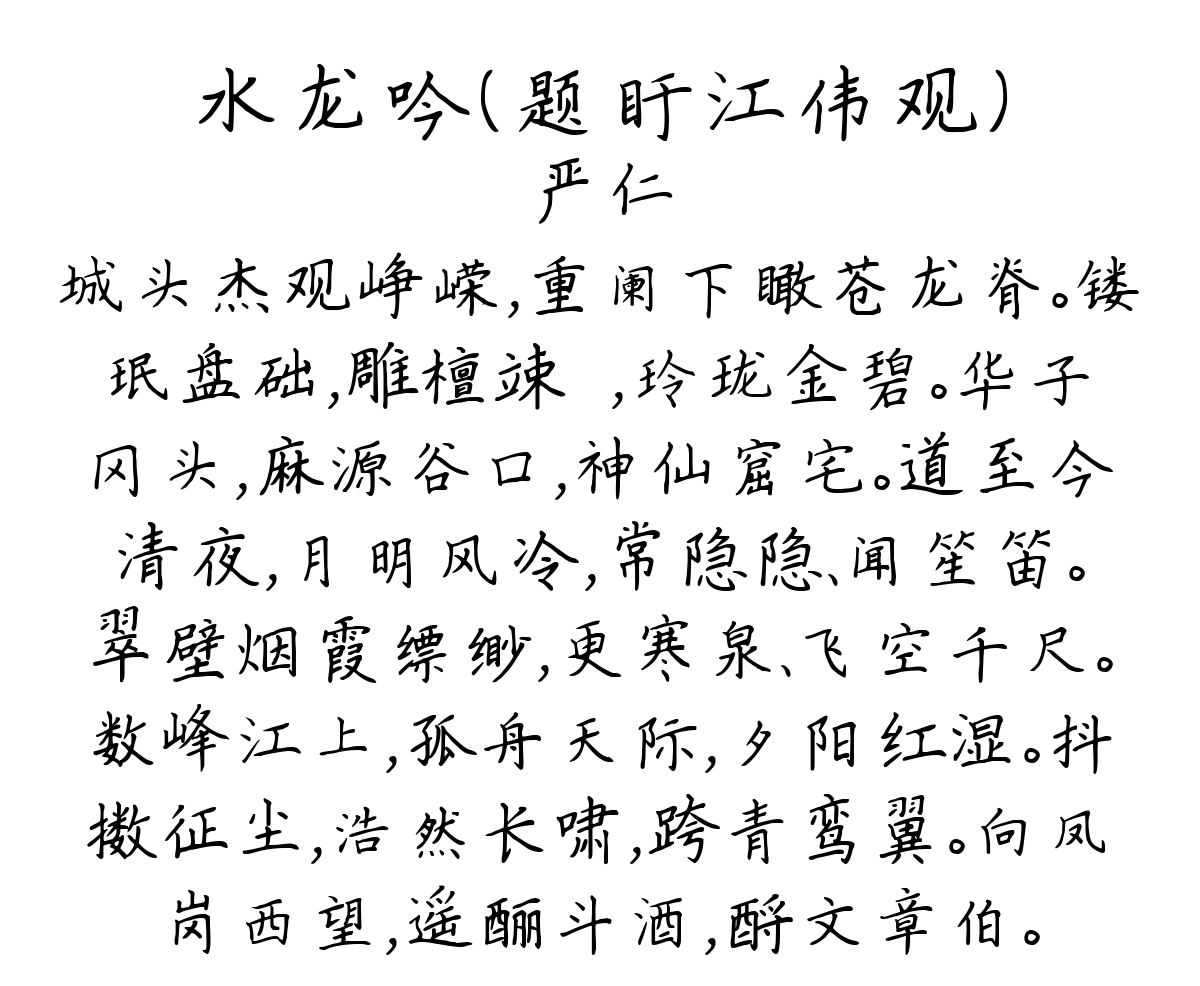 水龙吟(题盱江伟观)
严仁
城头杰观峥嵘,重阑下瞰苍龙脊。镂
珉盘础,雕檀竦 ,玲珑金碧。华子
冈头,麻源谷口,神仙窟宅。道至今
清夜,月明风冷,常隐隐、闻笙笛。
翠壁烟霞缥缈,更寒泉、飞空千尺。
数峰江上,孤舟天际,夕阳红湿。抖
擞征尘,浩然长啸,跨青鸾翼。向凤
岗西望,遥酾斗酒,酹文章伯。